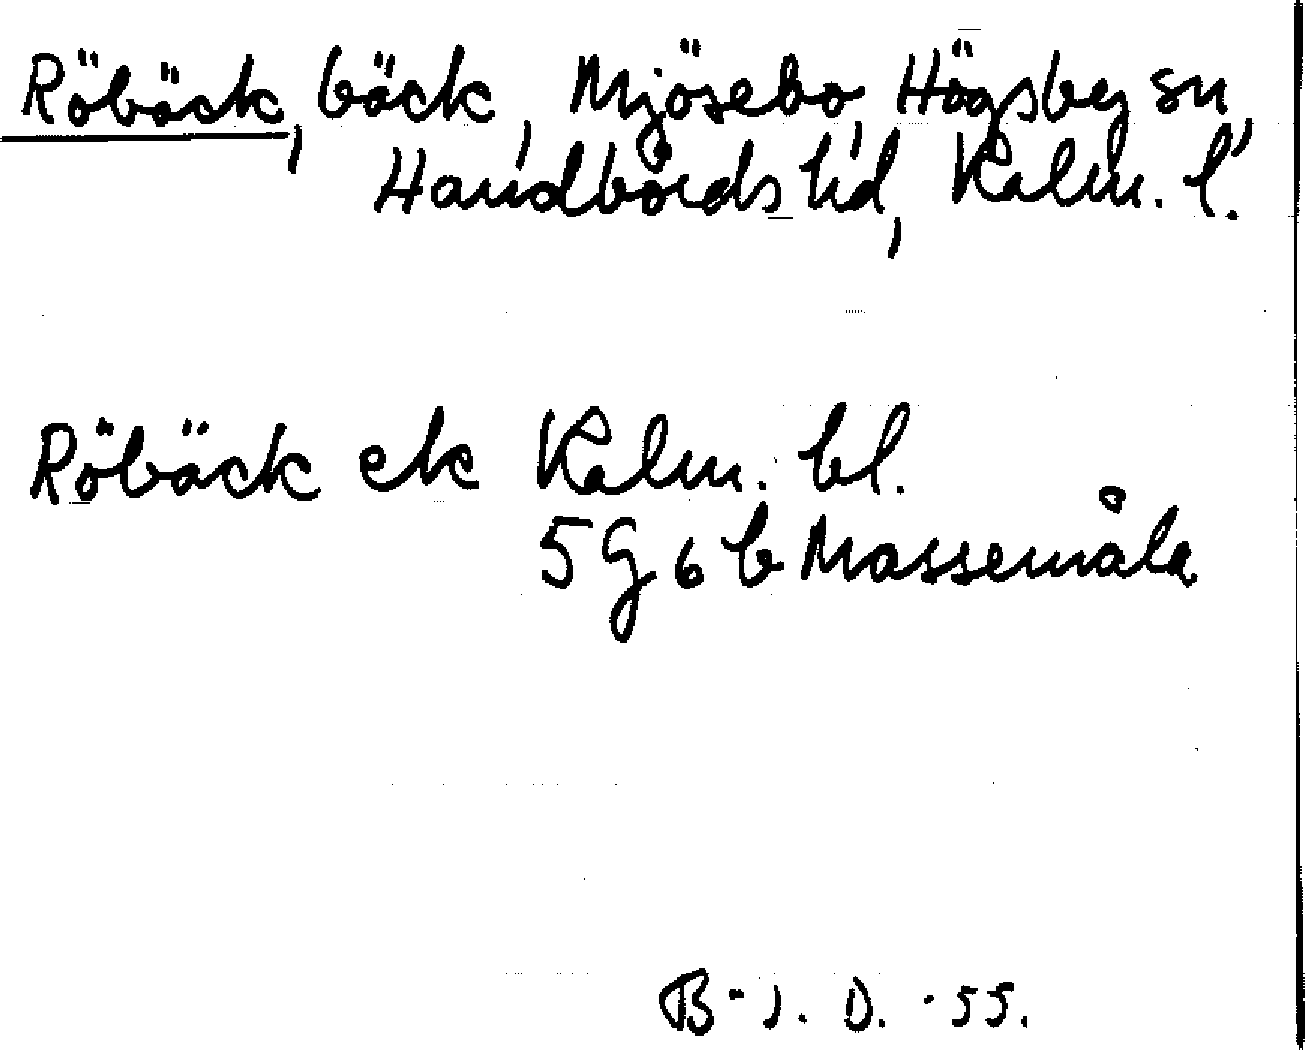 Röbäck, bäck, Mjösebo, Högsby sn,
Handbörds hd, Kalm. l.
Röbäck ek Kalm. bl.
5G6b Massemåla
B-J. D. -55.